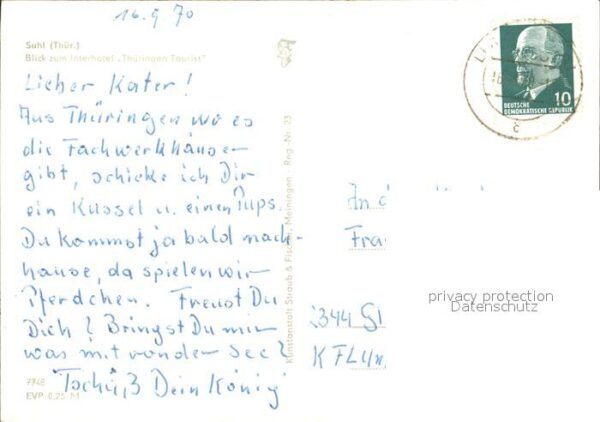 16.9 70
Suhl (Thür.)
Blick zum Interhotel „Thüringen Tourist"
Lieber Kater!
Aus Thüringen wo es
die Fachwerkhäuser
gibt, schicke ich Dir
ein Küssel u. einen Pups.
Du kommst ja bald nach-
hause, da spielen wir
Pferdchen. Freust Du
Dich? Bringst Du mir
was mit von der See?
Tschüß Dein König
7748
EVP 0,25 M
Kunstanstalt Straub & Fischer, Meiningen - Reg.-Nr. 23
10
DEUTSCHE
DEMOKRATISCHE REPUBLIK
c
An
Fra
2344 Gl
privacy protection
Datenschutz